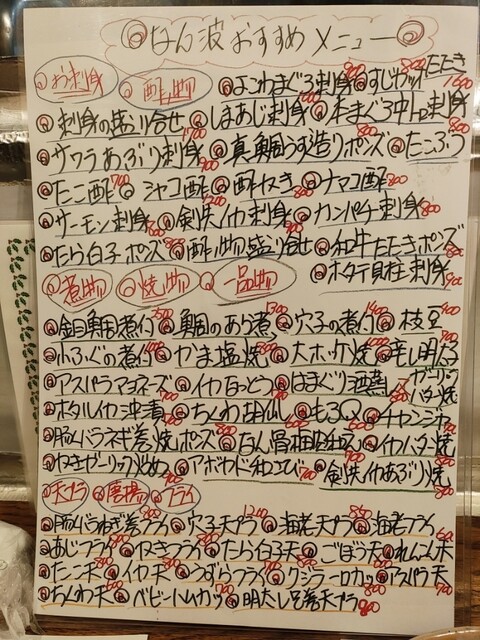 なん波おすすめメニュー
お刺身 酢の物 よこわまぐろ刺身 800 すじガツオ たたき
刺身の盛り合せ しまあじ刺身 本まぐろ中トロ刺身 1600
サワラあぶり刺身 真鯛うす造りポンズ 800 たこぶつ 800
たこ酢 700 シャコ酢 酢ガキ ナマコ酢 800
サーモン刺身 800 剣先イカ刺身 1200 カンパチ刺身
たら白子ポンズ 酢の物盛り合せ 和牛たたきポンズ
煮物 焼物 一品物 ホタテ貝柱刺身
金目鯛煮付 鯛のあら煮 1300 穴子の煮付 1400 枝豆
小ふぐの煮付 かま塩焼 大ホッケ焼 辛し明太子
アスパラマヨネーズ イカなっとう はまぐり酒蒸し ガーリックバター焼
ホタルイカ沖漬 ちくわ胡瓜 もろQ チャンジャ
豚バラネギ巻焼ポンズ なん骨梅肉和え イカバター焼
カキガーリック炒め アボカド和さび 剣先イカあぶり焼
天プラ 唐揚 フライ
豚バラねぎ巻フライ 穴子天プラ 1200 海老天プラ 850 海老フライ
あじフライ カキフライ たら白子天 ごぼう天 れんこん天
たこ天 イカ天 うずらフライ クジラ一口カツ アスパラ天
ちくわ天 ベビーハムカツ 明太しそ巻天プラ